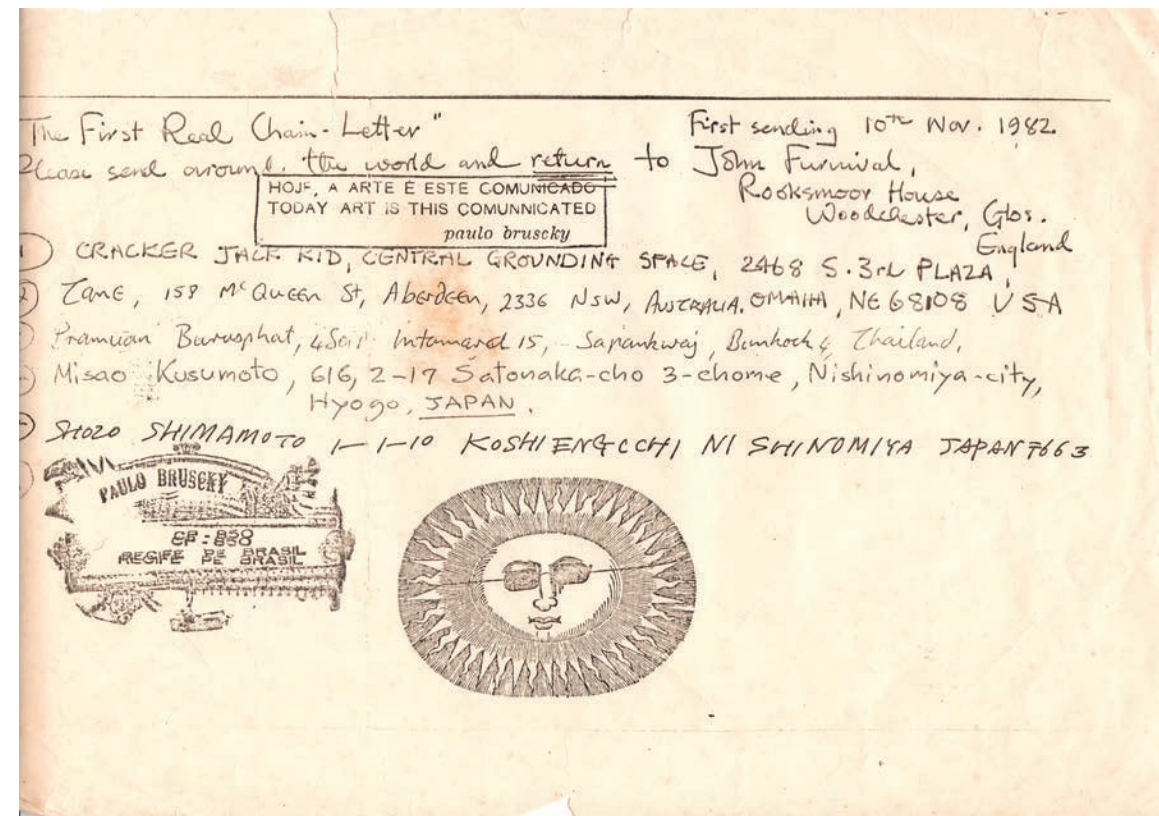 The First Real Chain-Letter"
First sending 10th Nov. 1982.
Please send around the world and return to John Furnival,
Rooksmoor House
Woodchester, Glos.
England
HOJE, A ARTE É ESTE COMUNICADO
TODAY ART IS THIS COMUNNICATED
paulo bruscky
1 CRACKER JACK KID, CENTRAL GROUNDING SPACE, 2468 S. 3rd PLAZA,
OMAHA, NE 68108 USA
2 ZANE, 158 McQueen St, Aberdeen, 2336 NSW, AUSTRALIA.
Pramuan Burusphat, 4 Soi Intamara 15, Sapankwaj, 4 Thailand,
Misao Kusumoto, 616, 2-17 Satonaka-cho 3-chome, Nishinomiya-city,
Hyogo, JAPAN.
SHOZO SHIMAMOTO 1-1-10 KOSHIENGCCHI NISHINOMIYA JAPAN 〒663
PAULO BRUSCKY
CP: 850
RECIFE PE BRASIL